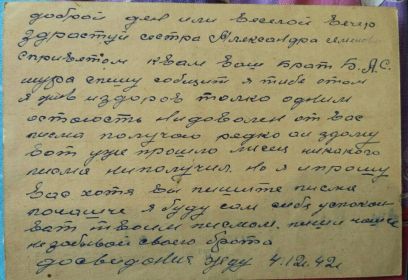 доброй ден или веселой вечер
здраствуй сестра Александра семенов
сприветом квам ваш брат Б. А. С.
шура спешу сообщит я тибе о том
я жив издоров толко одним
осталость нидоволен от вас
писма получаю редко аи здому
вот уже прошло месец никакого
писма ниполучил. но я и прошу
вас хотя вы пишите писма
почаще я буду сам себя успокаи
ват твоим писмом. пиши чаще
незабывай своего брота
досвидания жду 4.12.42г